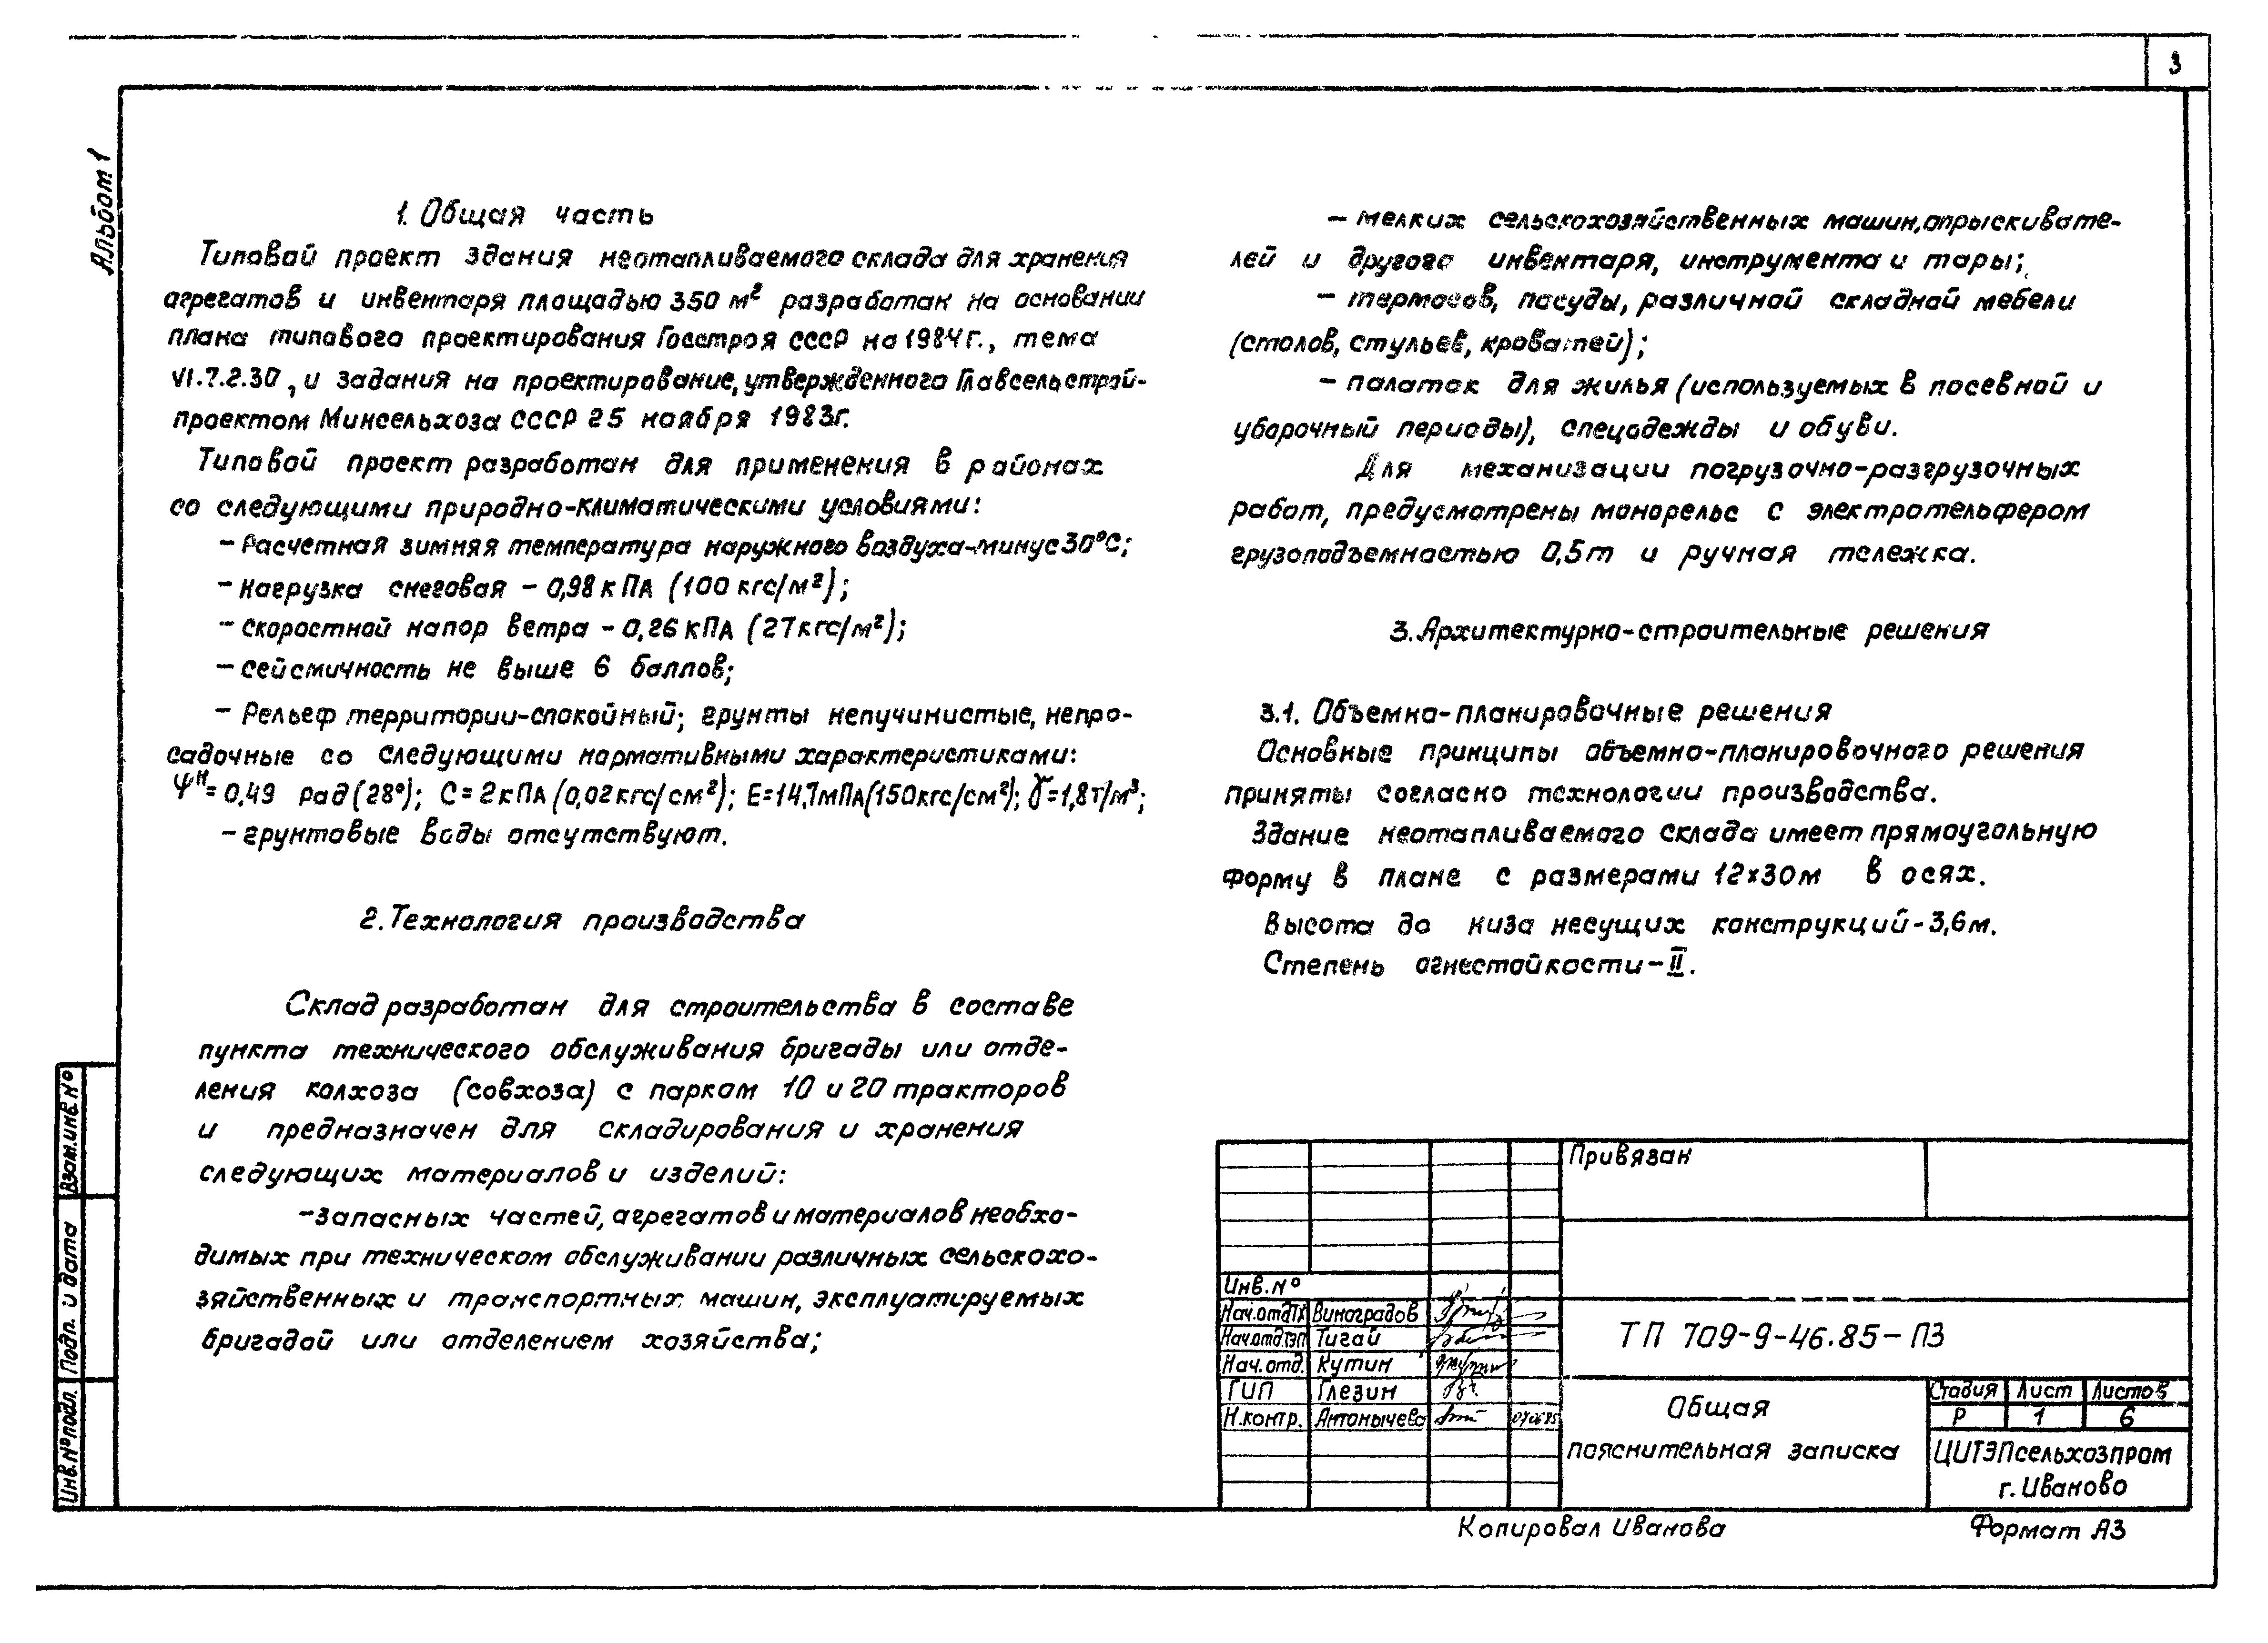 3
Альбом 1
1. Общая часть
Типовой проект здания неотапливаемого склада для хранения
агрегатов и инвентаря площадью 350 м² разработан на основании
плана типового проектирования Госстроя СССР на 1984г., тема
VI.7.2.30, и задания на проектирование, утвержденного Главсельстрой-
проектом Минсельхоза СССР 25 ноября 1983г.
Типовой проект разработан для применения в районах
со следующими природно-климатическими условиями:
- Расчетная зимняя температура наружного воздуха-минус 30°С;
- нагрузка снеговая - 0,98 кПА (100 кгс/м²);
- скоростной напор ветра - 0,26 кПА (27 кгс/м²);
- сейсмичность не выше 6 баллов;
- Рельеф территории-спокойный; грунты непучинистые, непро-
садочные со следующими нормативными характеристиками:
φᴴ = 0,49 рад (28°); С = 2 кПА (0,02 кгс/см²); Е = 14,7 мПА (150 кгс/см²); γ = 1,8 т/м³;
- грунтовые воды отсутствуют.
2. Технология производства
Склад разработан для строительства в составе
пункта технического обслуживания бригады или отде-
ления колхоза (совхоза) с парком 10 и 20 тракторов
и предназначен для складирования и хранения
следующих материалов и изделий:
- запасных частей, агрегатов и материалов необхо-
димых при техническом обслуживании различных сельскохо-
зяйственных и транспортных машин, эксплуатируемых
бригадой или отделением хозяйства;
- мелких сельскохозяйственных машин, опрыскивате-
лей и другого инвентаря, инструмента и тары;
- термосов, посуды, различной складной мебели
(столов, стульев, кроватей);
- палаток для жилья (используемых в посевной и
уборочный периоды), спецодежды и обуви.
Для механизации погрузочно-разгрузочных
работ, предусмотрены монорельс с электротельфером
грузоподъемностью 0,5т и ручная тележка.
3. Архитектурно-строительные решения
3.1. Объемно-планировочные решения
Основные принципы объемно-планировочного решения
приняты согласно технологии производства.
Здание неотапливаемого склада имеет прямоугольную
форму в плане с размерами 12х30м в осях.
Высота до низа несущих конструкций - 3,6м.
Степень огнестойкости - II.
Взам.инв.№
Подп. и дата
Инв.№подл.
Привязан
Инв.№
Нач.отдТХ Виноградов
Нач.отдТЭП Тигай
Нач.отд. Кутин
ГИП Глезин
Н.контр. Антонычева
ТП 709-9-46.85-ПЗ
Общая
пояснительная записка
Стадия Лист Листов
Р 1 6
ЦИТЭПсельхозпром
г. Иваново
Копировал Иванова
Формат А3